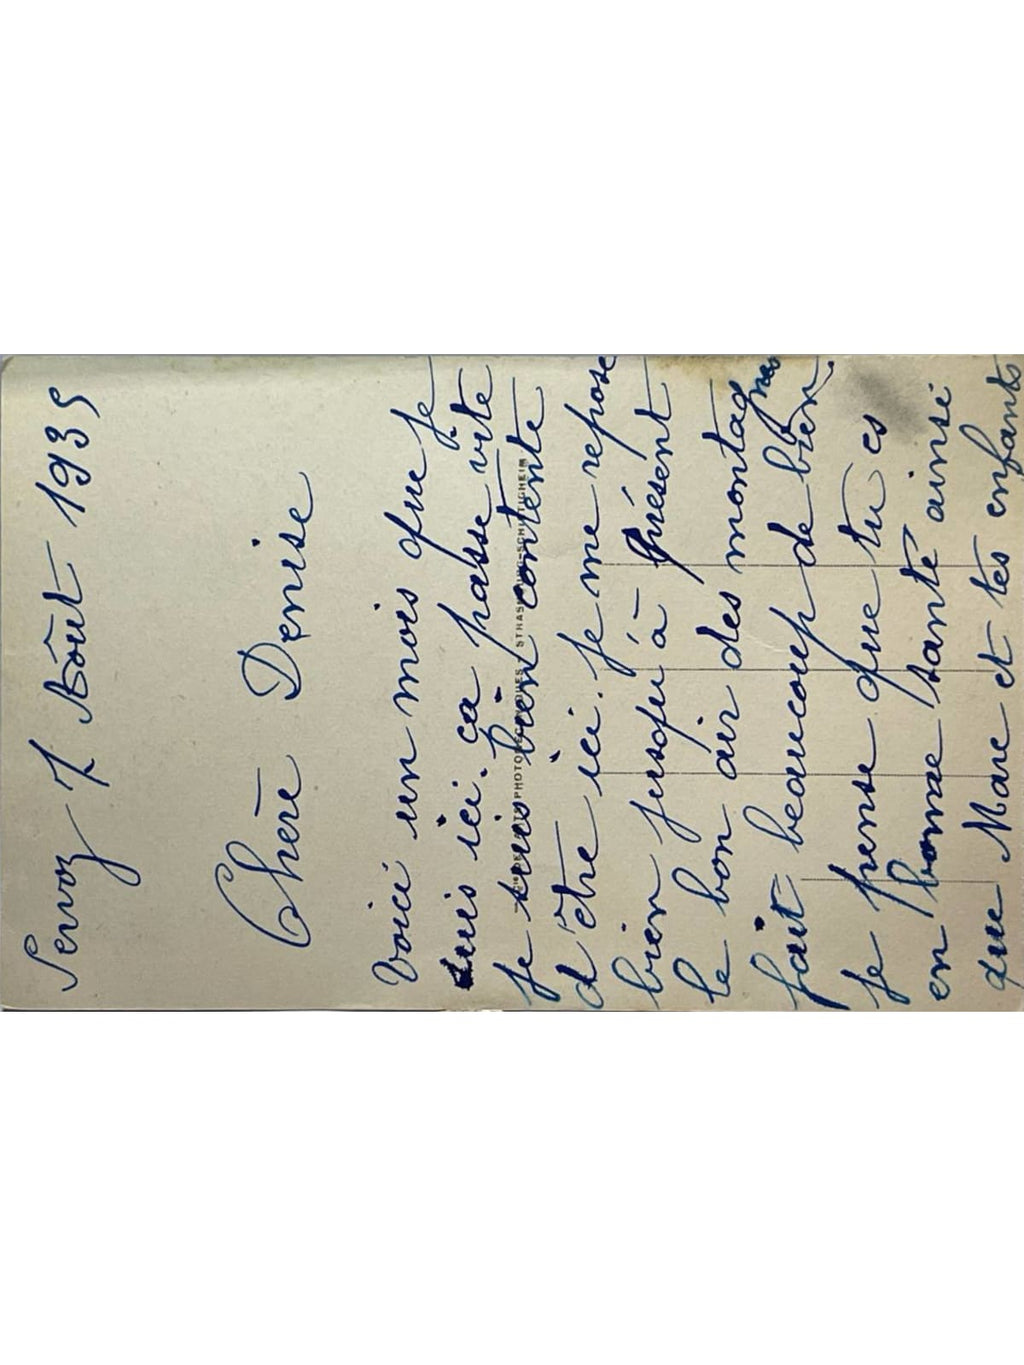 Servoz 7 Août 1935
Chère Denise
Voici un mois que je
suis ici. ça passe vite
je suis bien contente
d'être ici. je me repose
bien jusqu'à présent
le bon air des montagnes
fait beaucoup de bien.
je pense que tu es
en bonne santé ainsi
que Marc et tes enfants
PHOTOMÉCANIQUES STRASBOURG-SCHILTIGHEIM